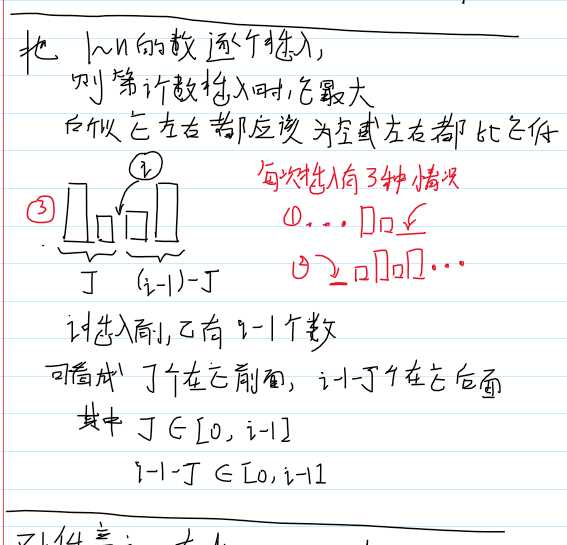 把 1~n的数逐个插入,
则第i个数插入时,它最大
所以它左右都应该为空或左右都比它低
i
每次插入有3种情况
③
① ...
② ...
J (i-1)-J
i插入前,已有 i-1个数
可看成 J个在它前面, i-1-J个在它后面
其中 J∈[0, i-1]
i-1-J ∈[0, i-1]